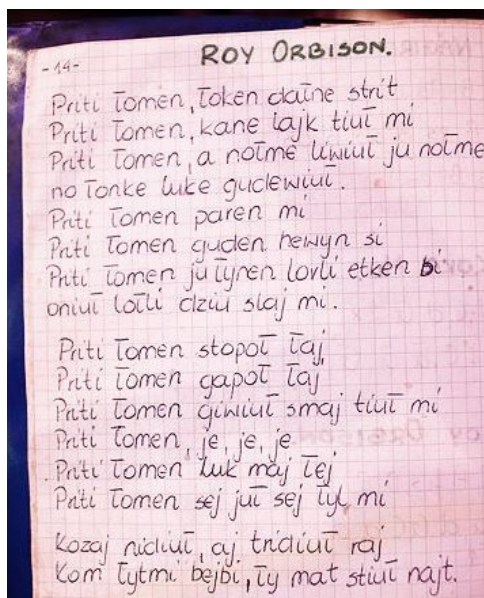 -14- ROY ORBISON.
Priti łomen, łoken dałne strit
Priti łomen, kane lajk tiuł mi
Priti łomen, a nołme liwiuł ju nołme
no łonke luke gudewiuł.
Priti łomen paren mi
Priti łomen guden hewyn si
Priti łomen ju łynen lovli etken bi
oniuł lotli dziu slaj mi.
Priti łomen stopoł łaj
Priti łomen gapoł łaj
Priti łomen giwiuł smaj tiuł mi
Priti łomen, je, je, je
Priti łomen luk maj łej
Priti łomen sej juł sej łyl mi
Kozaj nidiuł, aj tridiuł raj
Kom łytmi bejbi, ły mat stiuł najt.